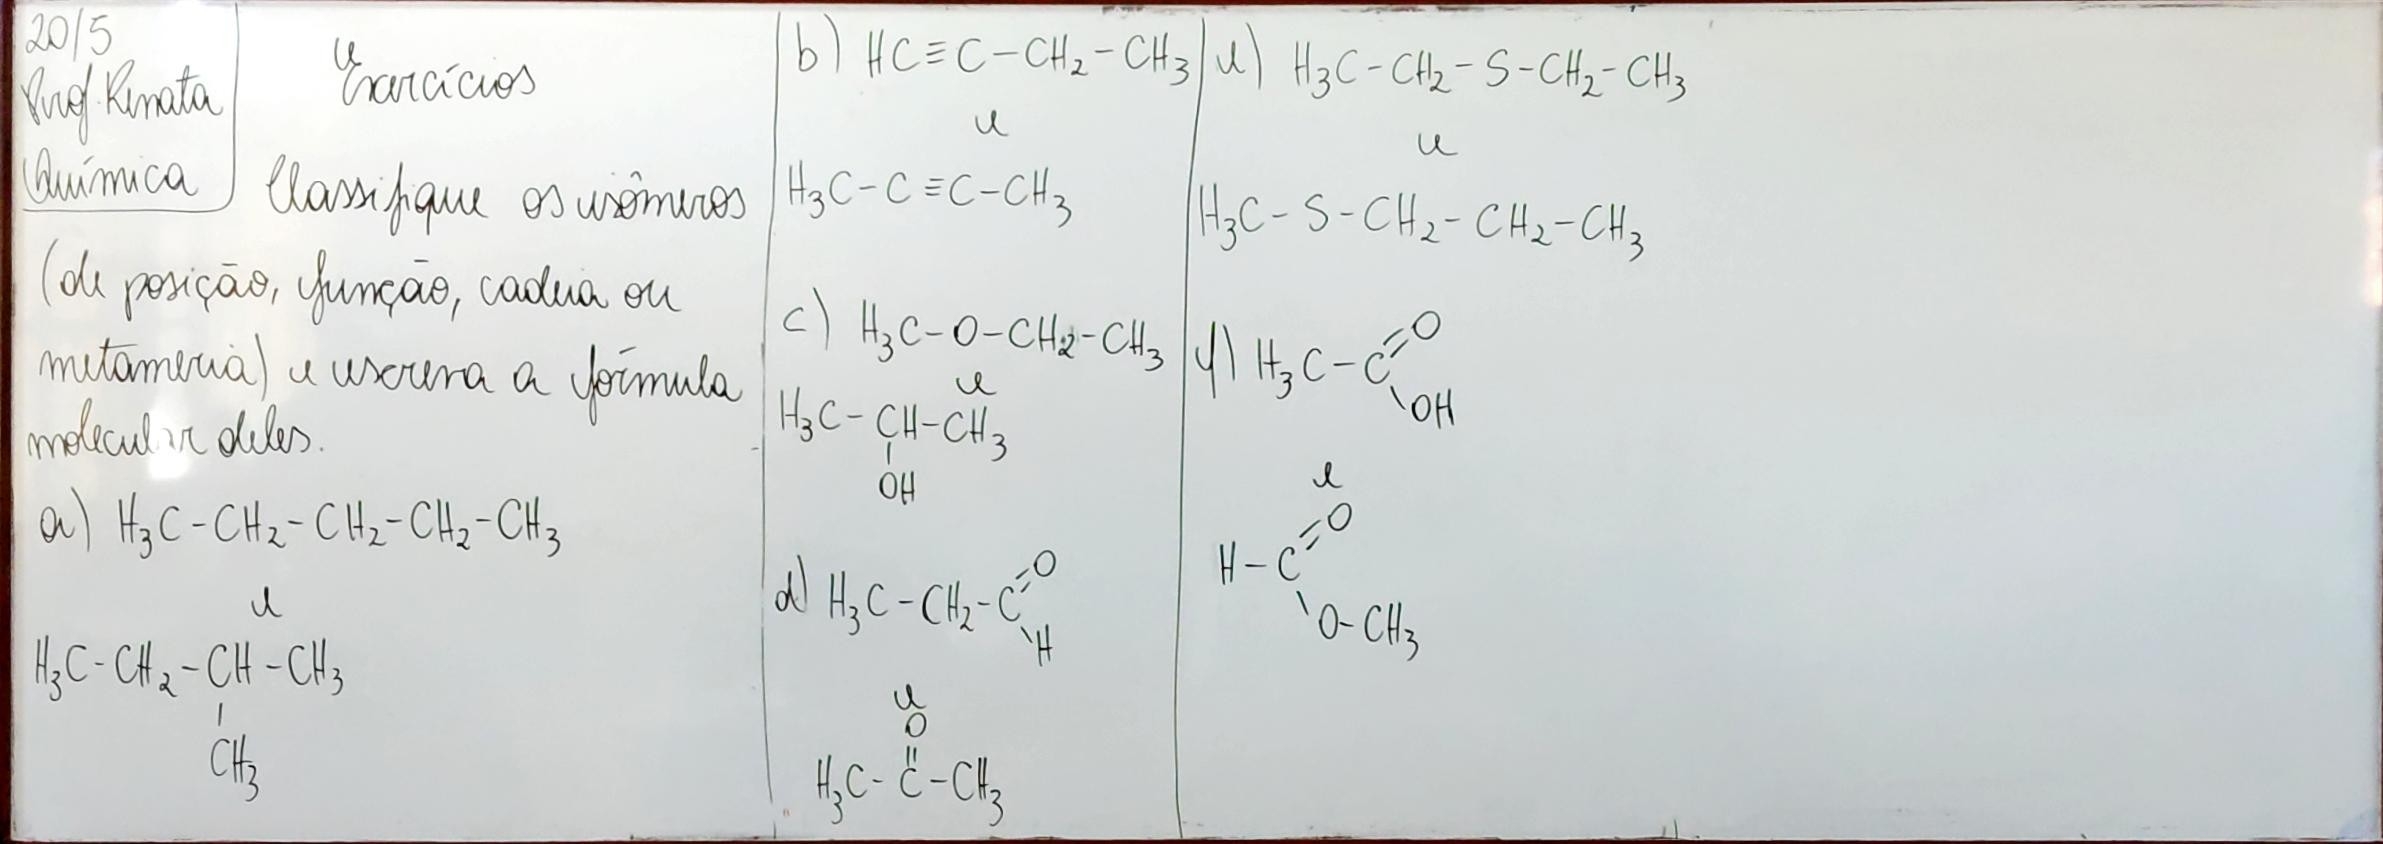 20/5
Prof. Renata
Química
Exercícios
Classifique os isômeros
(de posição, função, cadeia ou
metameria) e escreva a fórmula
molecular deles.
a) H₃C-CH₂-CH₂-CH₂-CH₃
e
H₃C-CH₂-CH-CH₃
|
CH₃
b) HC≡C-CH₂-CH₃
e
H₃C-C≡C-CH₃
c) H₃C-O-CH₂-CH₃
e
H₃C-CH-CH₃
|
OH
d) H₃C-CH₂-C=O
\H
e
O
||
H₃C-C-CH₃
e) H₃C-CH₂-S-CH₂-CH₃
e
H₃C-S-CH₂-CH₂-CH₃
f) H₃C-C=O
\OH
e
H-C=O
\O-CH₃